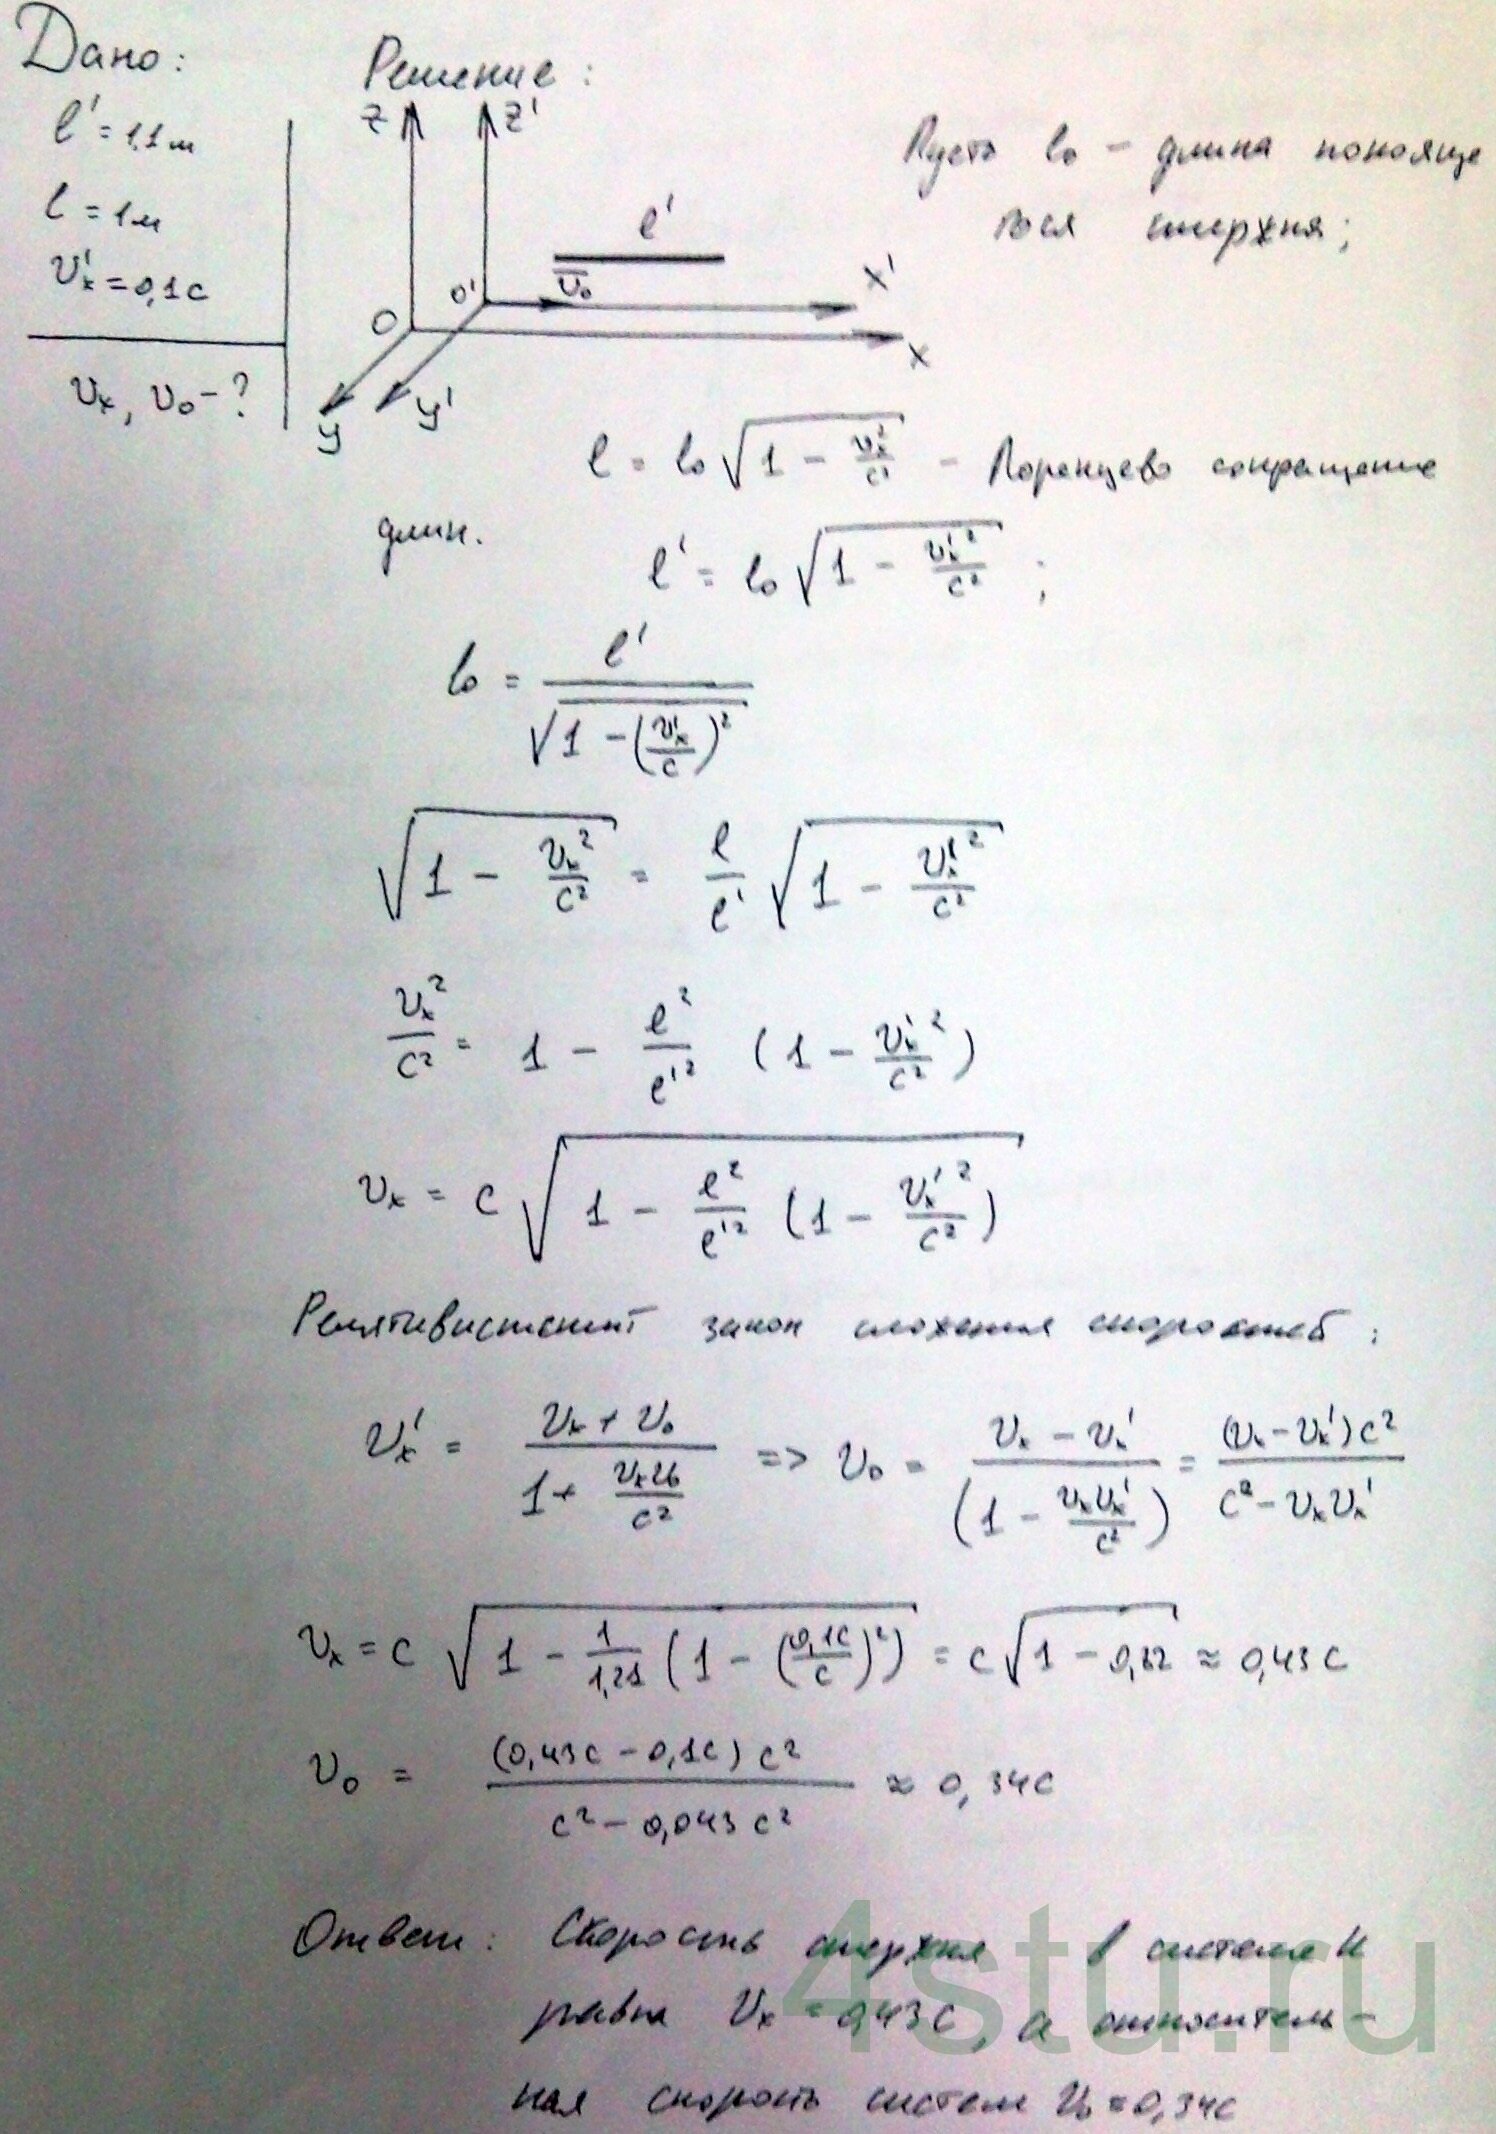 Дано:
l' = 1,1 м
l = 1 м
υₓ' = 0,1c
υₓ, υ₀ - ?
Решение:
z z'
l'
υ̅₀
O O'
x'
x
y y'
Пусть l₀ - длина покояще
гося стержня;
l = l₀ √(1 - υₓ²/c²) - Лоренцево сокращение
длин.
l' = l₀ √(1 - υₓ'²/c²) ;
l₀ = l' / √(1 - (υₓ'/c)²)
√(1 - υₓ²/c²) = l/l' √(1 - υₓ'²/c²)
υₓ²/c² = 1 - l²/l'² (1 - υₓ'²/c²)
υₓ = c √(1 - l²/l'² (1 - υₓ'²/c²))
Релятивистский закон сложения скоростей :
υₓ' = (υₓ + υ₀) / (1 + υₓυ₀/c²) => υ₀ = (υₓ - υₓ') / (1 - υₓυₓ'/c²) = (υₓ - υₓ')c² / (c² - υₓυₓ')
υₓ = c √(1 - 1/1,21 (1 - (0,1c/c)²)) = c √(1 - 0,82) ≈ 0,43c
υ₀ = (0,43c - 0,1c) c² / (c² - 0,043c²) ≈ 0,34c
Ответ: Скорость стержня в системе К
равна υₓ = 0,43c, а относитель-
ная скорость систем υ₀ = 0,34c
4stu.ru